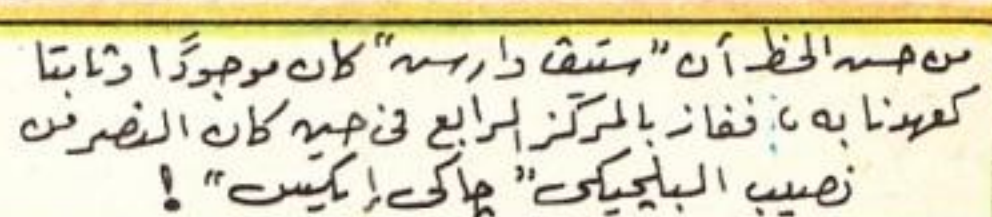 من حسن الحظ أن "ستيف وارسن" كان موجودًا وثابتا
كعهدنا به ، ففاز بالمركز الرابع فى حين كان النصر من
نصيب البلچيكى "چاكى إكيس" !